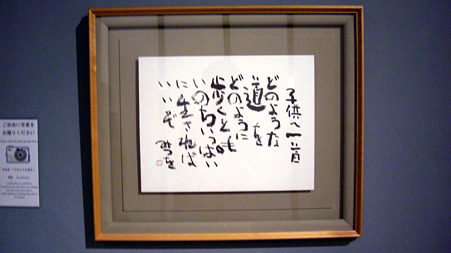 子供へ一首
どのような
道を
どのように
歩くとも
いのちいっぱい
に生きれば
いいぞ みつを
ご自由に写真を
お撮りください